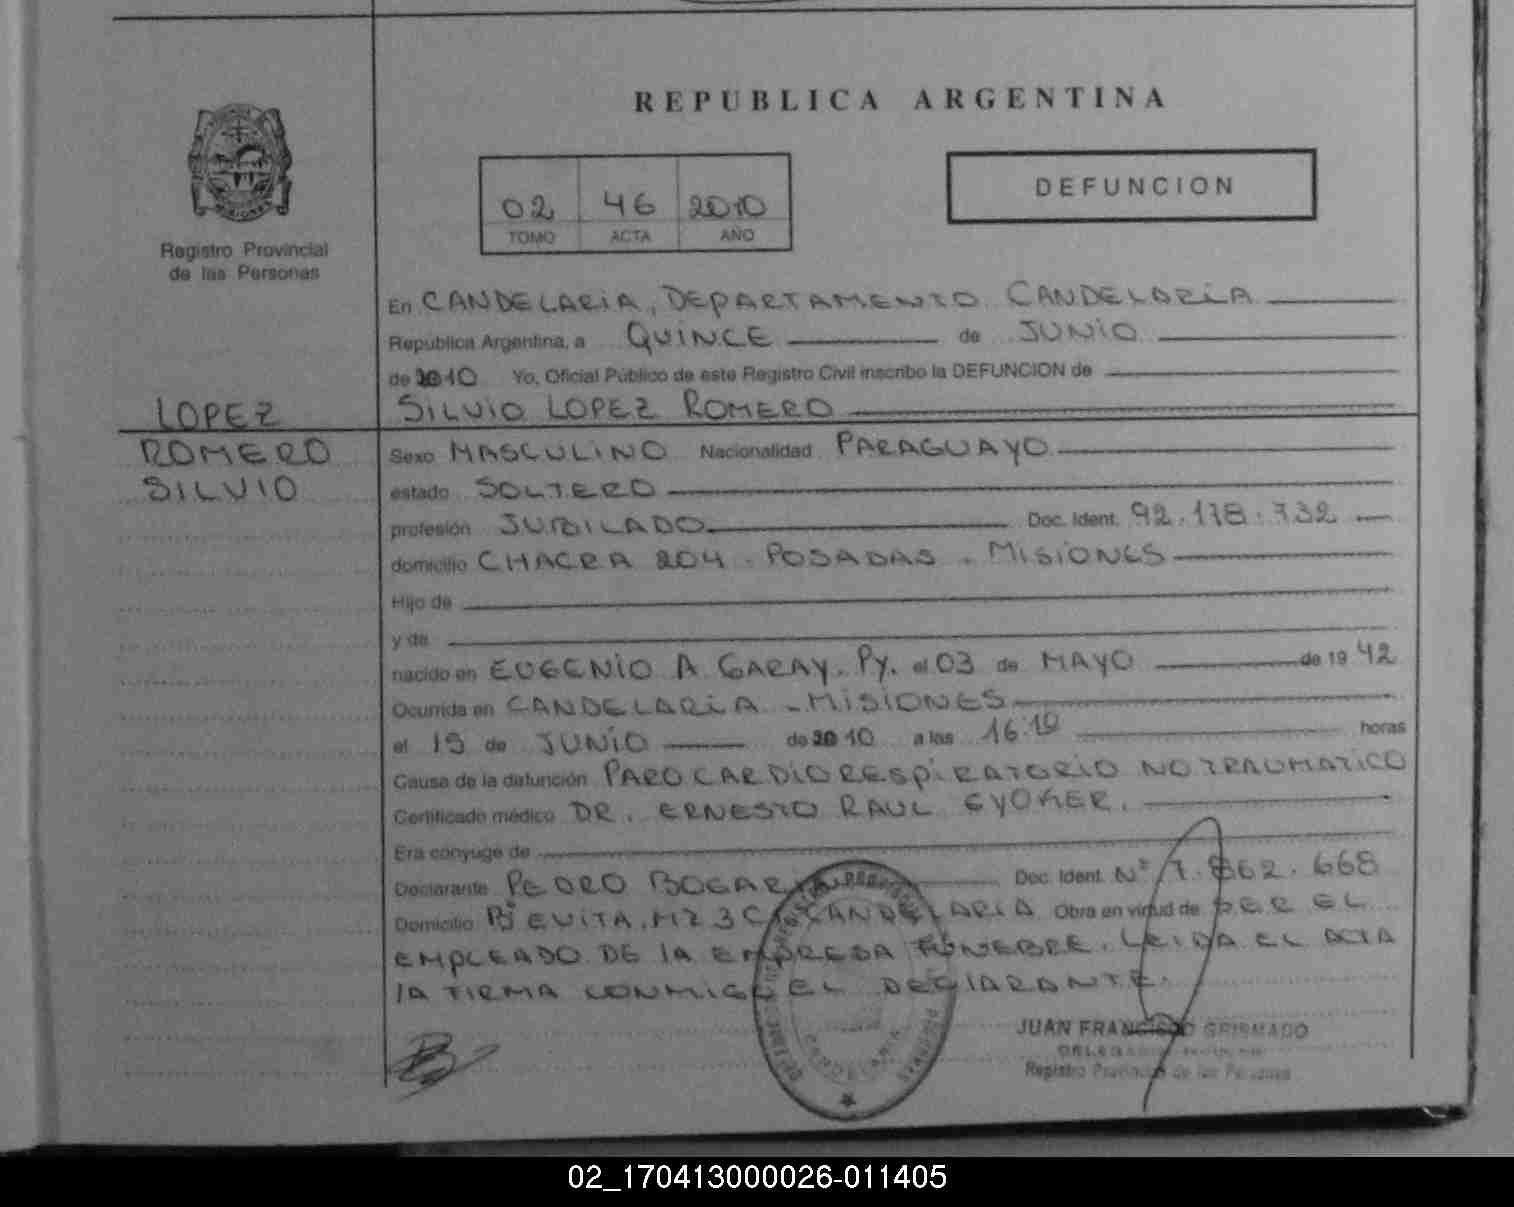 REPUBLICA ARGENTINA
MISIONES
Registro Provincial
de las Personas
02 46 2010
TOMO ACTA AÑO
DEFUNCION
En CANDELARIA, DEPARTAMENTO CANDELARIA
República Argentina, a QUINCE de JUNIO
de 2010 Yo, Oficial Público de este Registro Civil inscribo la DEFUNCION de
LOPEZ
ROMERO
SILVIO
SILVIO LOPEZ ROMERO
Sexo MASCULINO Nacionalidad PARAGUAYO
estado SOLTERO
profesión JUBILADO Doc. Ident. 92.178.732
domicilio CHACRA 204 - POSADAS - MISIONES
Hijo de
y de
nacido en EUGENIO A GARAY. Py. el 03 de MAYO de 1942
Ocurrida en CANDELARIA - MISIONES
el 15 de JUNIO de 2010 a las 16:10 horas
Causa de la defunción PARO CARDIORESPIRATORIO NO TRAUMATICO
Certificado médico DR. ERNESTO RAUL GYOKER.
Era cónyuge de
Declarante PEDRO BOGAR Doc. Ident. Nº 7.862.668
Domicilio Bº EVITA. MZ 3 CANDELARIA Obra en virtud de SER EL
EMPLEADO DE LA EMPRESA FUNEBRE. LEIDA EL ACTA
LA FIRMA CONMIGO EL DECLARANTE.
JUAN FRANCISCO GRISMADO
Registro Provincial de las Personas
CANDELARIA
02_170413000026-011405